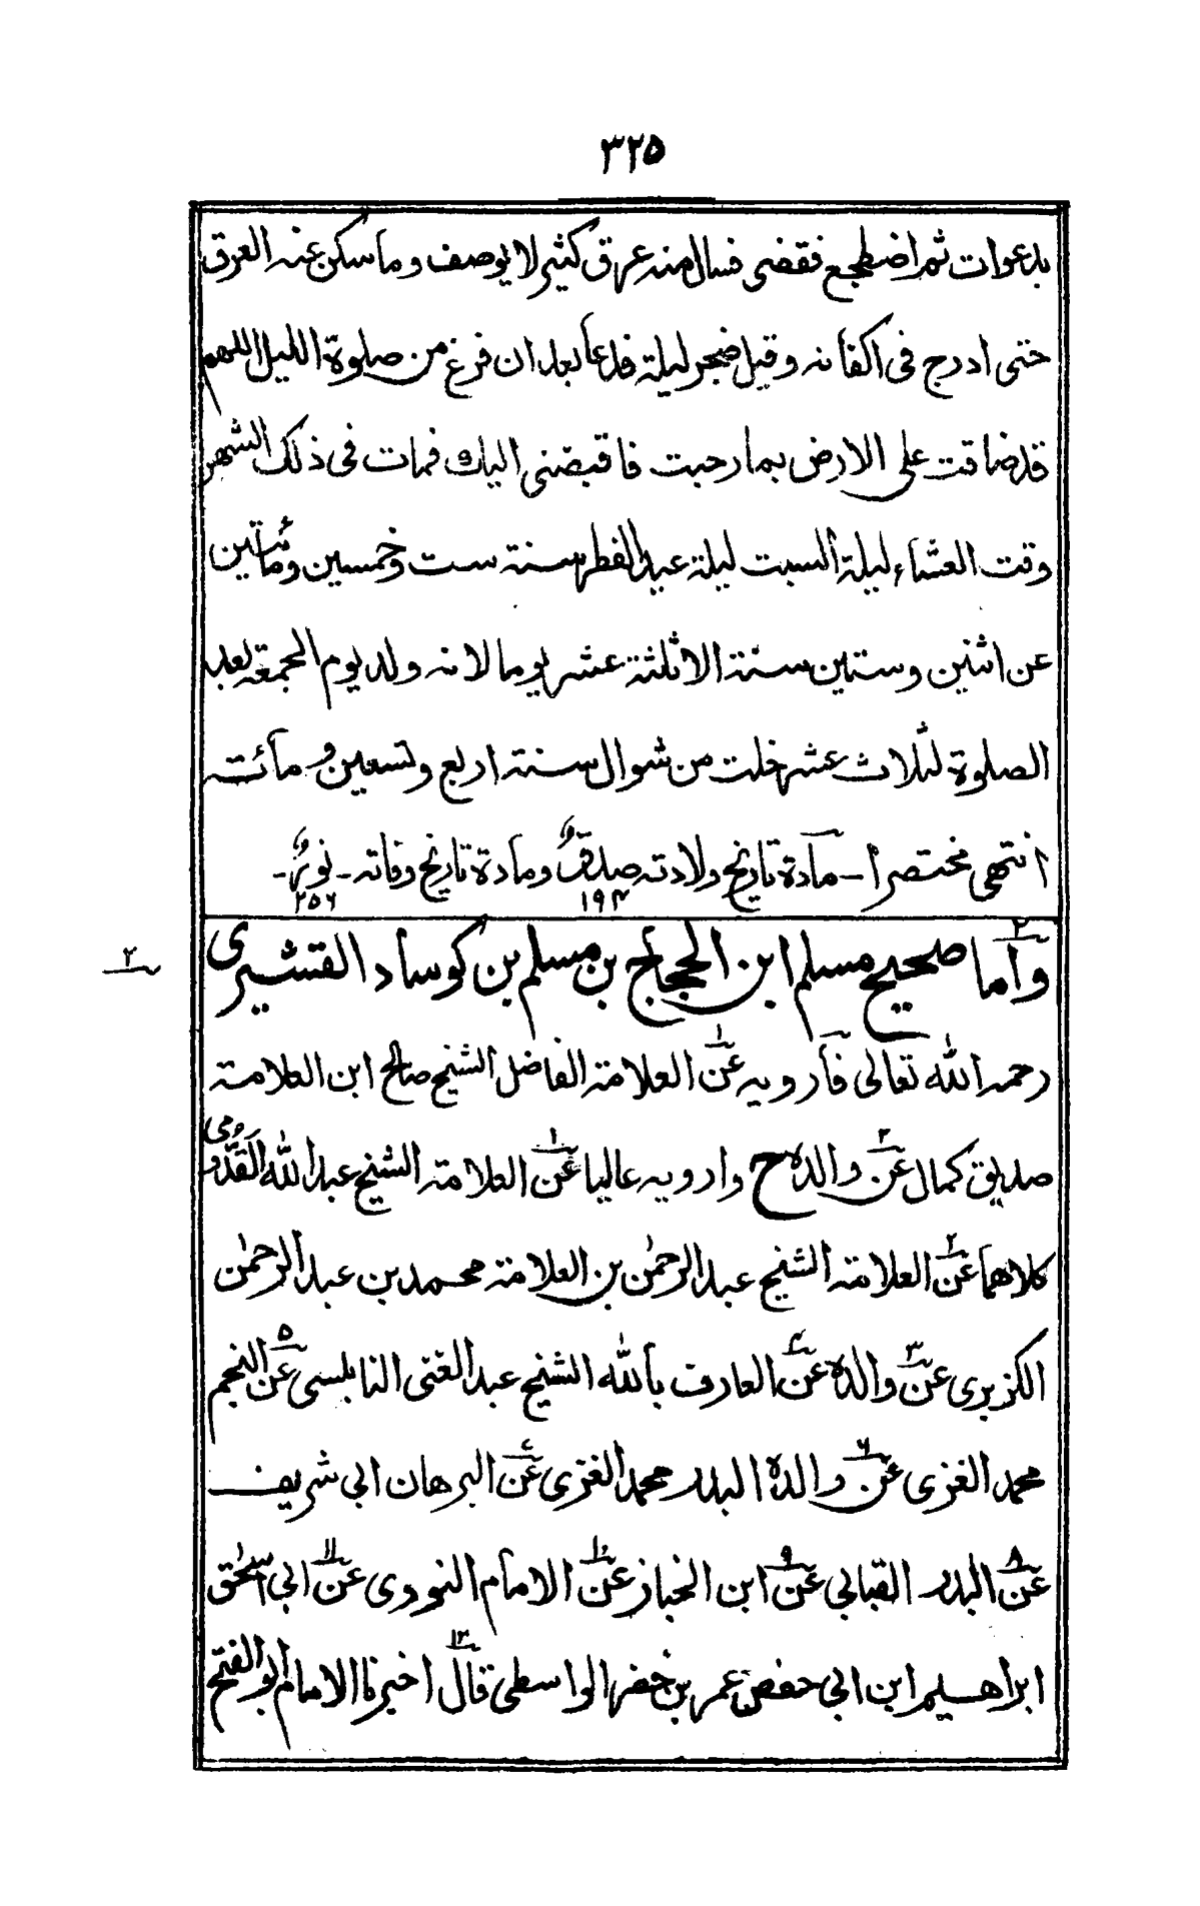 ٣٢٥
بدعوات ثم اضطجع فقضى فسال منه عرق كثير لا يوصف وما سكن عنه العرق
حتى ادرج فى اكفانه وقيل ضجر ليلة فدعا بعد ان فرغ من صلوة الليل اللهم
قد ضاقت على الارض بما رحبت فاقبضنى اليك فمات فى ذلك الشهر
وقت العشاء ليلة السبت ليلة عيد الفطر سنة ست وخمسين ومأتين
عن اثنين وستين سنة الا ثلثة عشر يوما لانه ولد يوم الجمعة بعد
الصلوة لثلاث عشر خلت من شوال سنة اربع وتسعين ومائة
انتهى مختصرا - مادة تاريخ ولادته صدقٌ ومادة تاريخ وفاته - نورٌ -
١٩٤ ٢٥٦
٢
واما صحيح مسلم ابن الحجاج بن مسلم بن كوساد القشيرى
٢
رحمه الله تعالى فأرويه عن١ العلامة الفاضل الشيخ صالح ابن العلامة
صديق كمال عن٢ والده ح وارويه عاليا عن١ العلامة الشيخ عبد الله القَدُّومى
كلاهما عن٢ العلامة الشيخ عبد الرحمٰن بن العلامة محمد بن عبد الرحمٰن
الكزبرى عن٣ والده عن٤ العارف بالله الشيخ عبد الغنى النابلسى عن٥ النجم
محمد الغزى عن٦ والده البدر محمد الغزى عن٧ البرهان ابى شريف
عن٨ البدر القبابى عن٩ ابن الخباز عن١٠ الامام النووى عن١١ ابى اسحٰق
ابراهيم ابن ابى حفص عمر بن خضر الواسطى قال١٢ اخبرنا الامام ابو الفتح